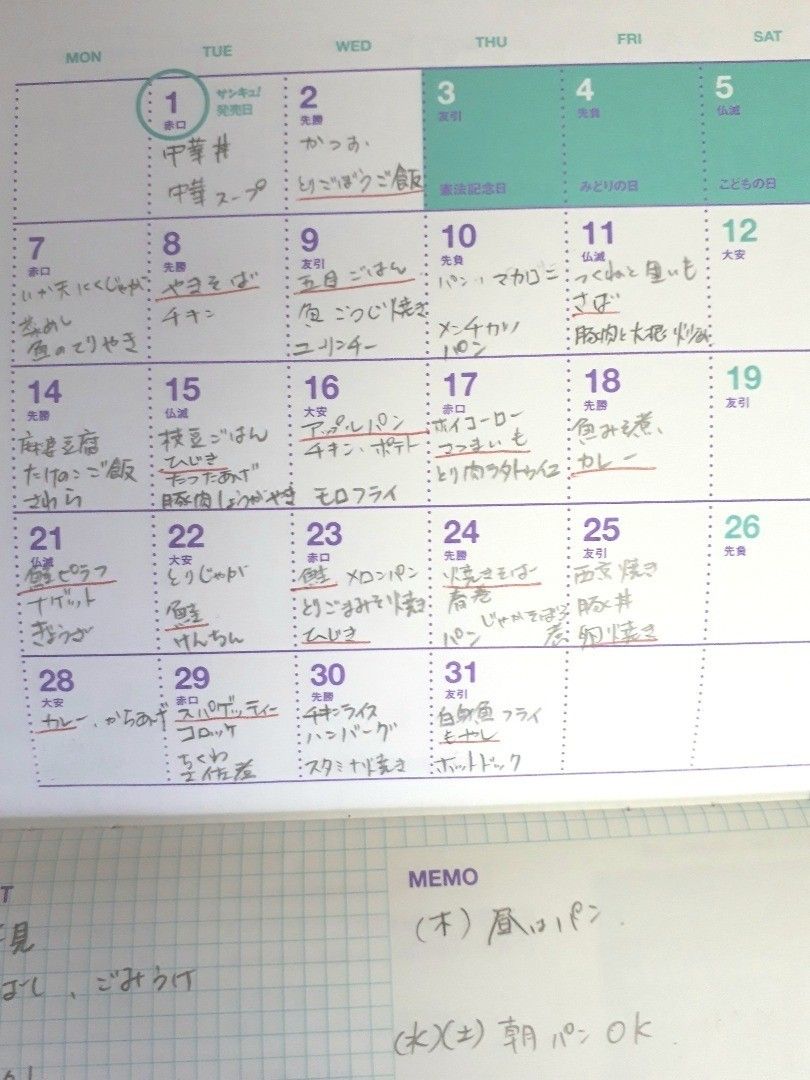 MON TUE WED THU FRI SAT
1 サンキュ! 発売日
赤口
中華丼
中華スープ
2
先勝
かつお、
とりごぼうご飯
3
友引
憲法記念日
4
先負
みどりの日
5
仏滅
こどもの日
7
赤口
いか天 にくじゃが
魚のてりやき
8
先勝
やきそば
チキン
9
友引
五目ごはん
魚 こうじ焼き
ユーリンチー
10
先負
パン、マカロニ
メンチカツ
パン
11
仏滅
つくねと里いも
さば
豚肉と大根
12
大安
14
先勝
麻婆豆腐
たけのこご飯
さわら
15
仏滅
枝豆ごはん
ひじき
たつたあげ
豚肉しょうがやき
16
大安
アップルパン
チキン、ポテト
モロフライ
17
赤口
ホイコーロー
さつまいも
とり肉ラタトゥイユ
18
先勝
魚みそ煮、
カレー
19
友引
21
仏滅
鮭ピラフ
ナゲット
ぎょうざ
22
大安
とりじゃが
鮭
けんちん
23
赤口
鮭 メロンパン
とりごまみそ焼き
ひじき
24
先勝
焼きそば
春巻
じゃがそぼろ煮
パン
25
友引
西京焼き
豚丼
卵焼き
26
先負
28
大安
カレー、からあげ
29
赤口
スパゲッティー
コロッケ
ちくわ
土佐煮
30
先勝
チキンライス
ハンバーグ
スタミナ焼き
31
友引
白身魚フライ
もやし
ホットドック
T
見
ごみうけ
MEMO
(木) 昼はパン.
(水)(土) 朝パンOK